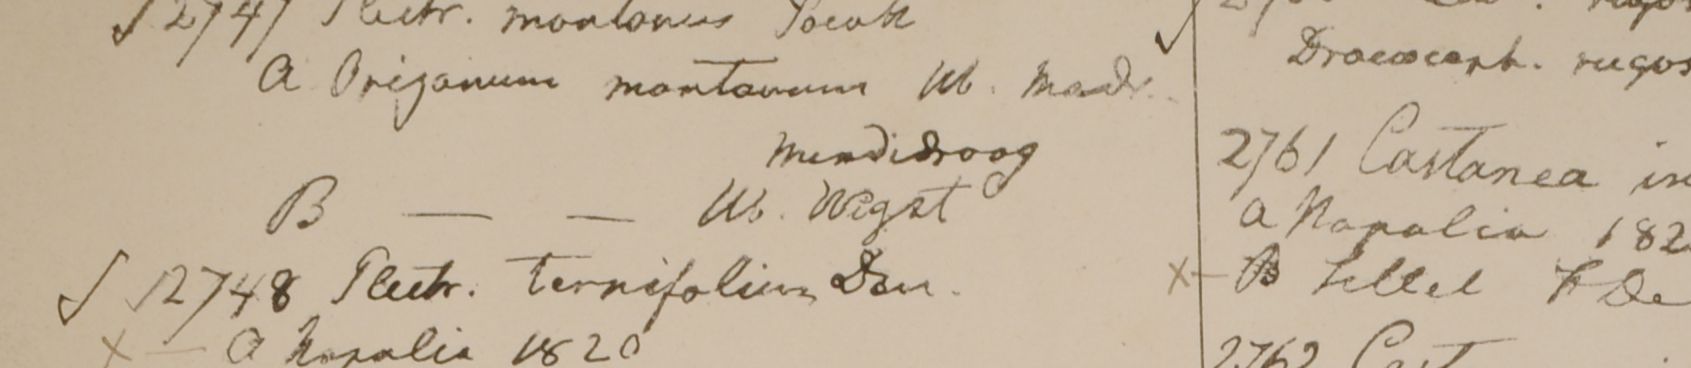 √ 2747 Plectr. montanus
A Origanum montanum Hb. Madr.
Mundidroog
B — — Hb. Wight
√ 2748 Plectr. ternifolium Don.
× — A Napalia 1820
Dracoceph. rugos
2761 Castanea in
A Napalia 182
×— B
2762 Cast